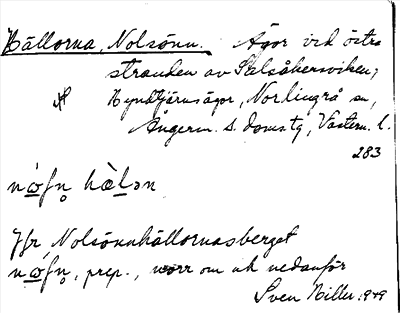 Hällorna, Nolsönn. Ägor vid östra
stranden av Salsåkersviken,
Hyndtjärnsägor, Nordingrå sn,
Ångerm. s. doms tg, Västern. l.
283
hä̀lən
Jfr Nolsönnhällornasberget
prep., norr om och nedanför
Sven Hiller 1949